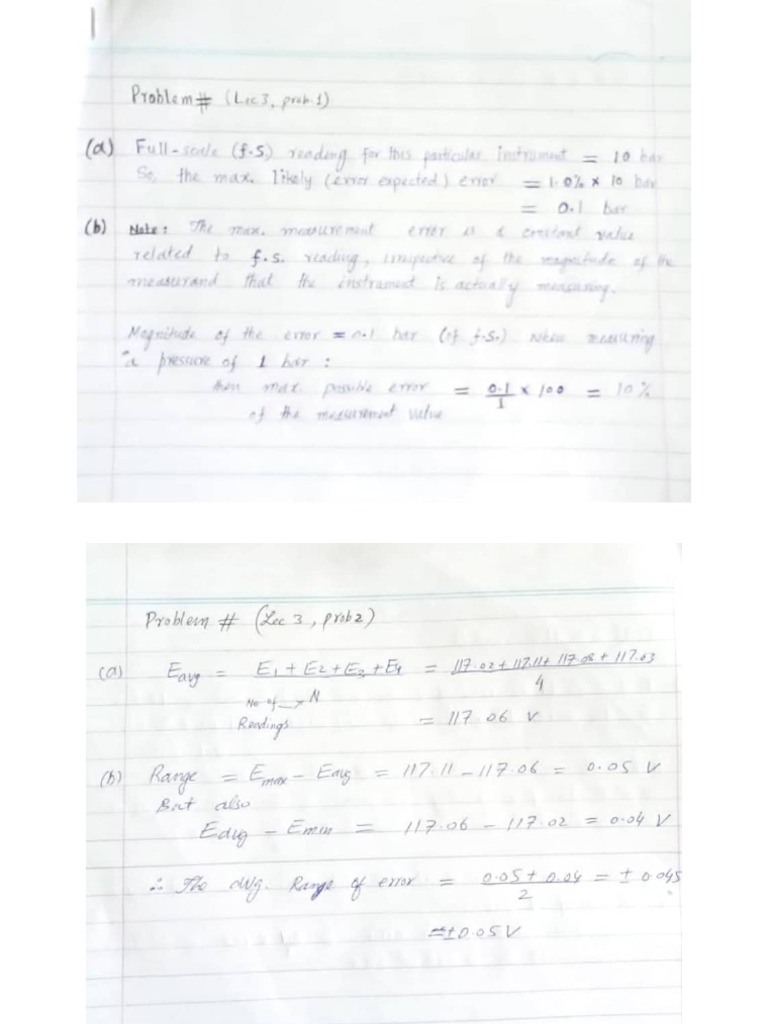 Problem # (Lec 3, prob.1)
(a) Full-scale (f.s) reading for this particular instrument = 10 bar
So, the max. likely (error expected) error = 1.0% × 10 bar
= 0.1 bar
(b) Note: The max. measurement error is a constant value
related to f.s. reading, irrespective of the magnitude of the
measurand that the instrument is actually measuring.
Magnitude of the error = 0.1 bar (of f.s.) when measuring
a pressure of 1 bar :
then max. possible error = 0.1/1 × 100 = 10%
of the measurement value
Problem # (Lec 3, prob 2)
(a) Eavg = E1 + E2 + E3 + E4 / N = 117.02 + 117.11 + 117.08 + 117.03 / 4
No of → N
Readings = 117.06 V
(b) Range = Emax – Eavg = 117.11 – 117.06 = 0.05 V
But also
Eavg – Emin = 117.06 – 117.02 = 0.04 V
∴ The avg. Range of error = 0.05 + 0.04 / 2 = ± 0.045
= ± 0.05 V